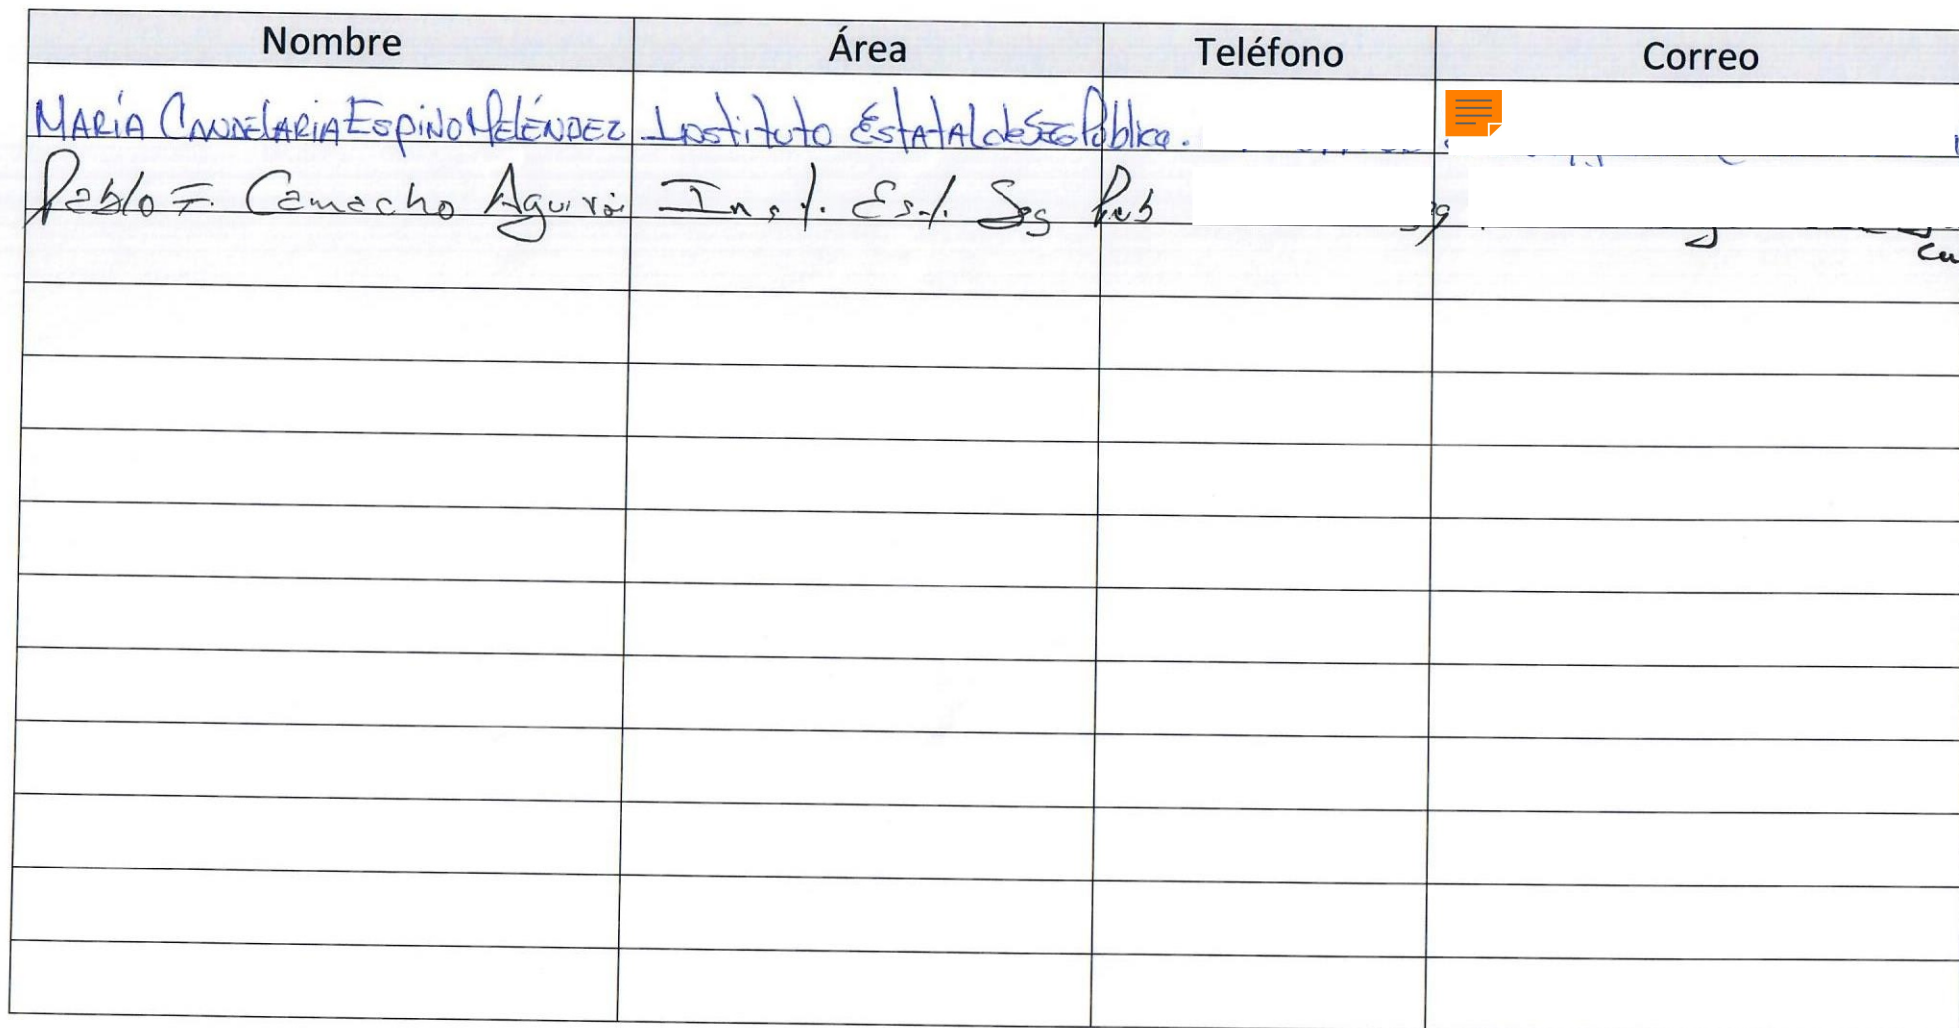 Nombre Área Teléfono Correo
MARÍA CANDELARIA ESPINO MELÉNDEZ Instituto EstAtAl de SEG Pública.
Pablo F. Camacho Aguirre Inst. Est. Seg Pub